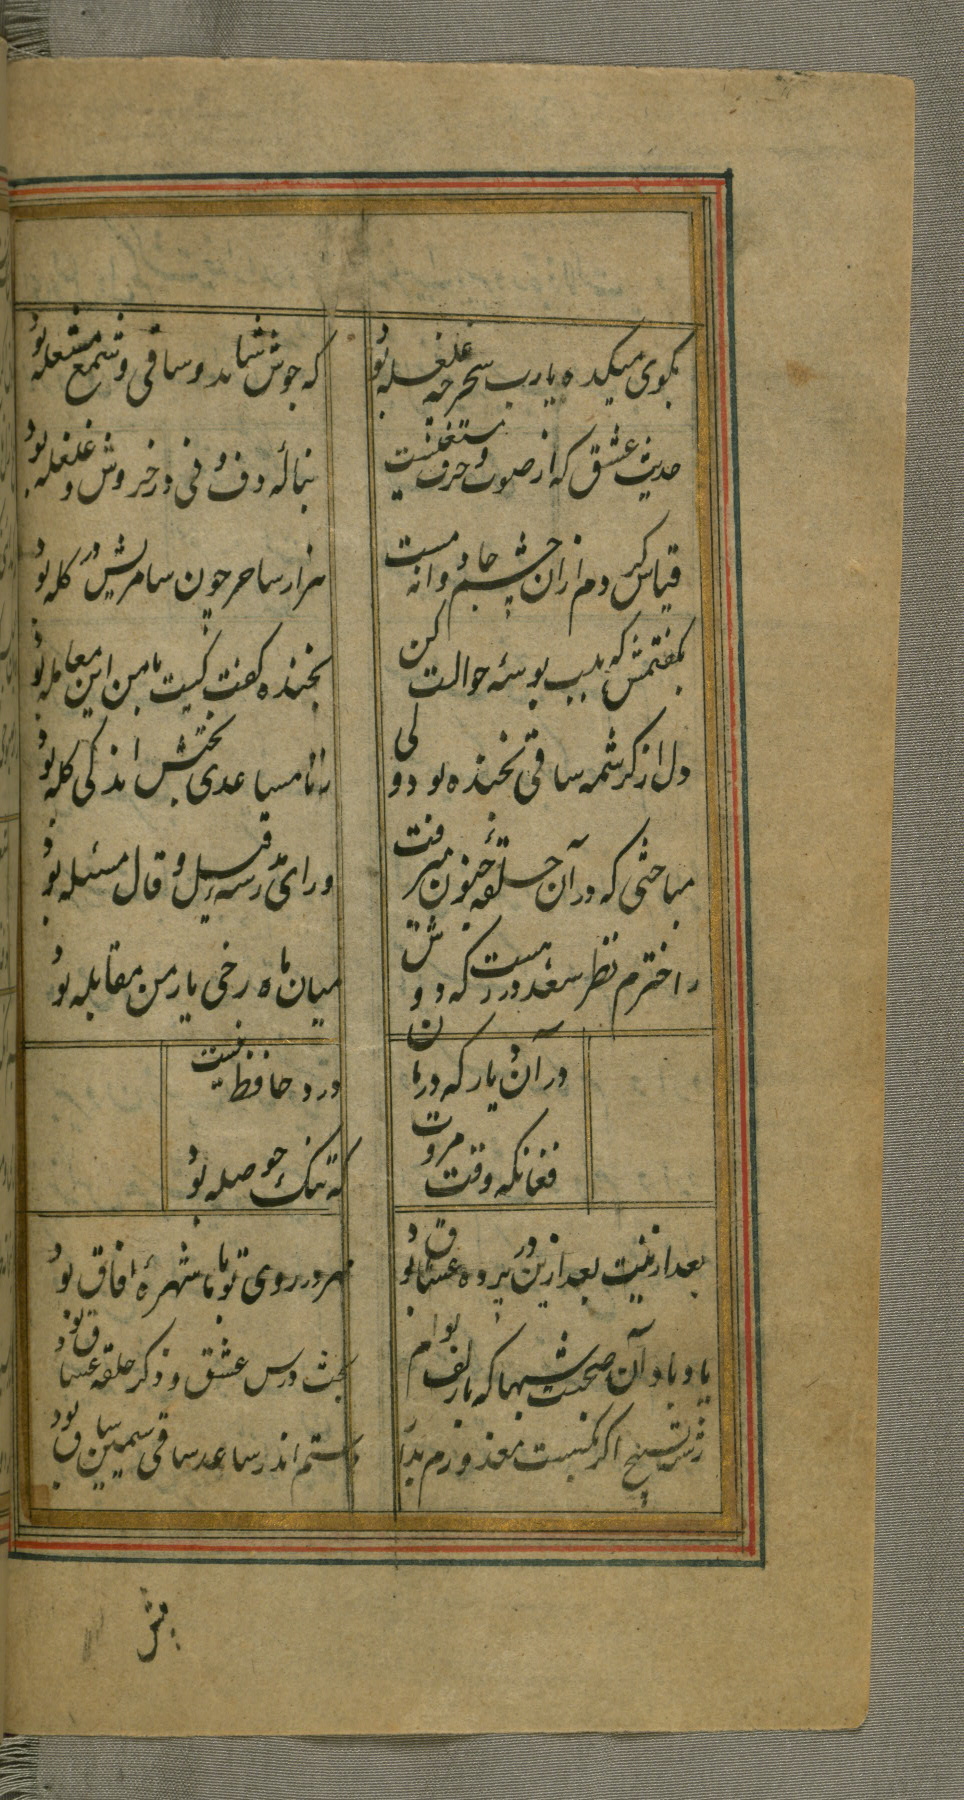 بکوی میکده یارب سحر چه غلغله بود
که جوش شاهد و ساقی و شمع مشعله بود
حدیث عشق که از صوت و حرف مستغنیست
بنالهٔ دف و نی در خروش و غلغله بود
قیاس کردم ازان چشم جادوانه مست
هزار ساحر چون سامریش در کله بود
بگفتمش که بلب بوسهٔ حوالت کن
بخنده گفت کیت با من این معامله بود
دل از کرشمه ساقی بخنده بود ولی
زنا مساعدی بختش اندکی کله بود
مباحثی که در آن حلقهٔ جنون میرفت
ورای مدرسه و قیل و قال مسئله بود
ز اخترم نظر سعد در رهست که دوش
میان ماه رخی یار من مقابله بود
در آن یار که درمان
درد حافظ نیست
فغانکه وقت مروت
که تنک حوصله بود
بعد ازینت بعد ازین در پرده عشاق بود
مهرورروی تو با ما شهرهٔ افاق بود
یاد باد آن صحبت شبها که با زلف توام
بحث درس عشق و ذکر حلقه عشاق بود
رشته تسبیح اکر بکسست معذورم بدار
دستم اندر ساعد ساقی سیمین ساق بود
پیش